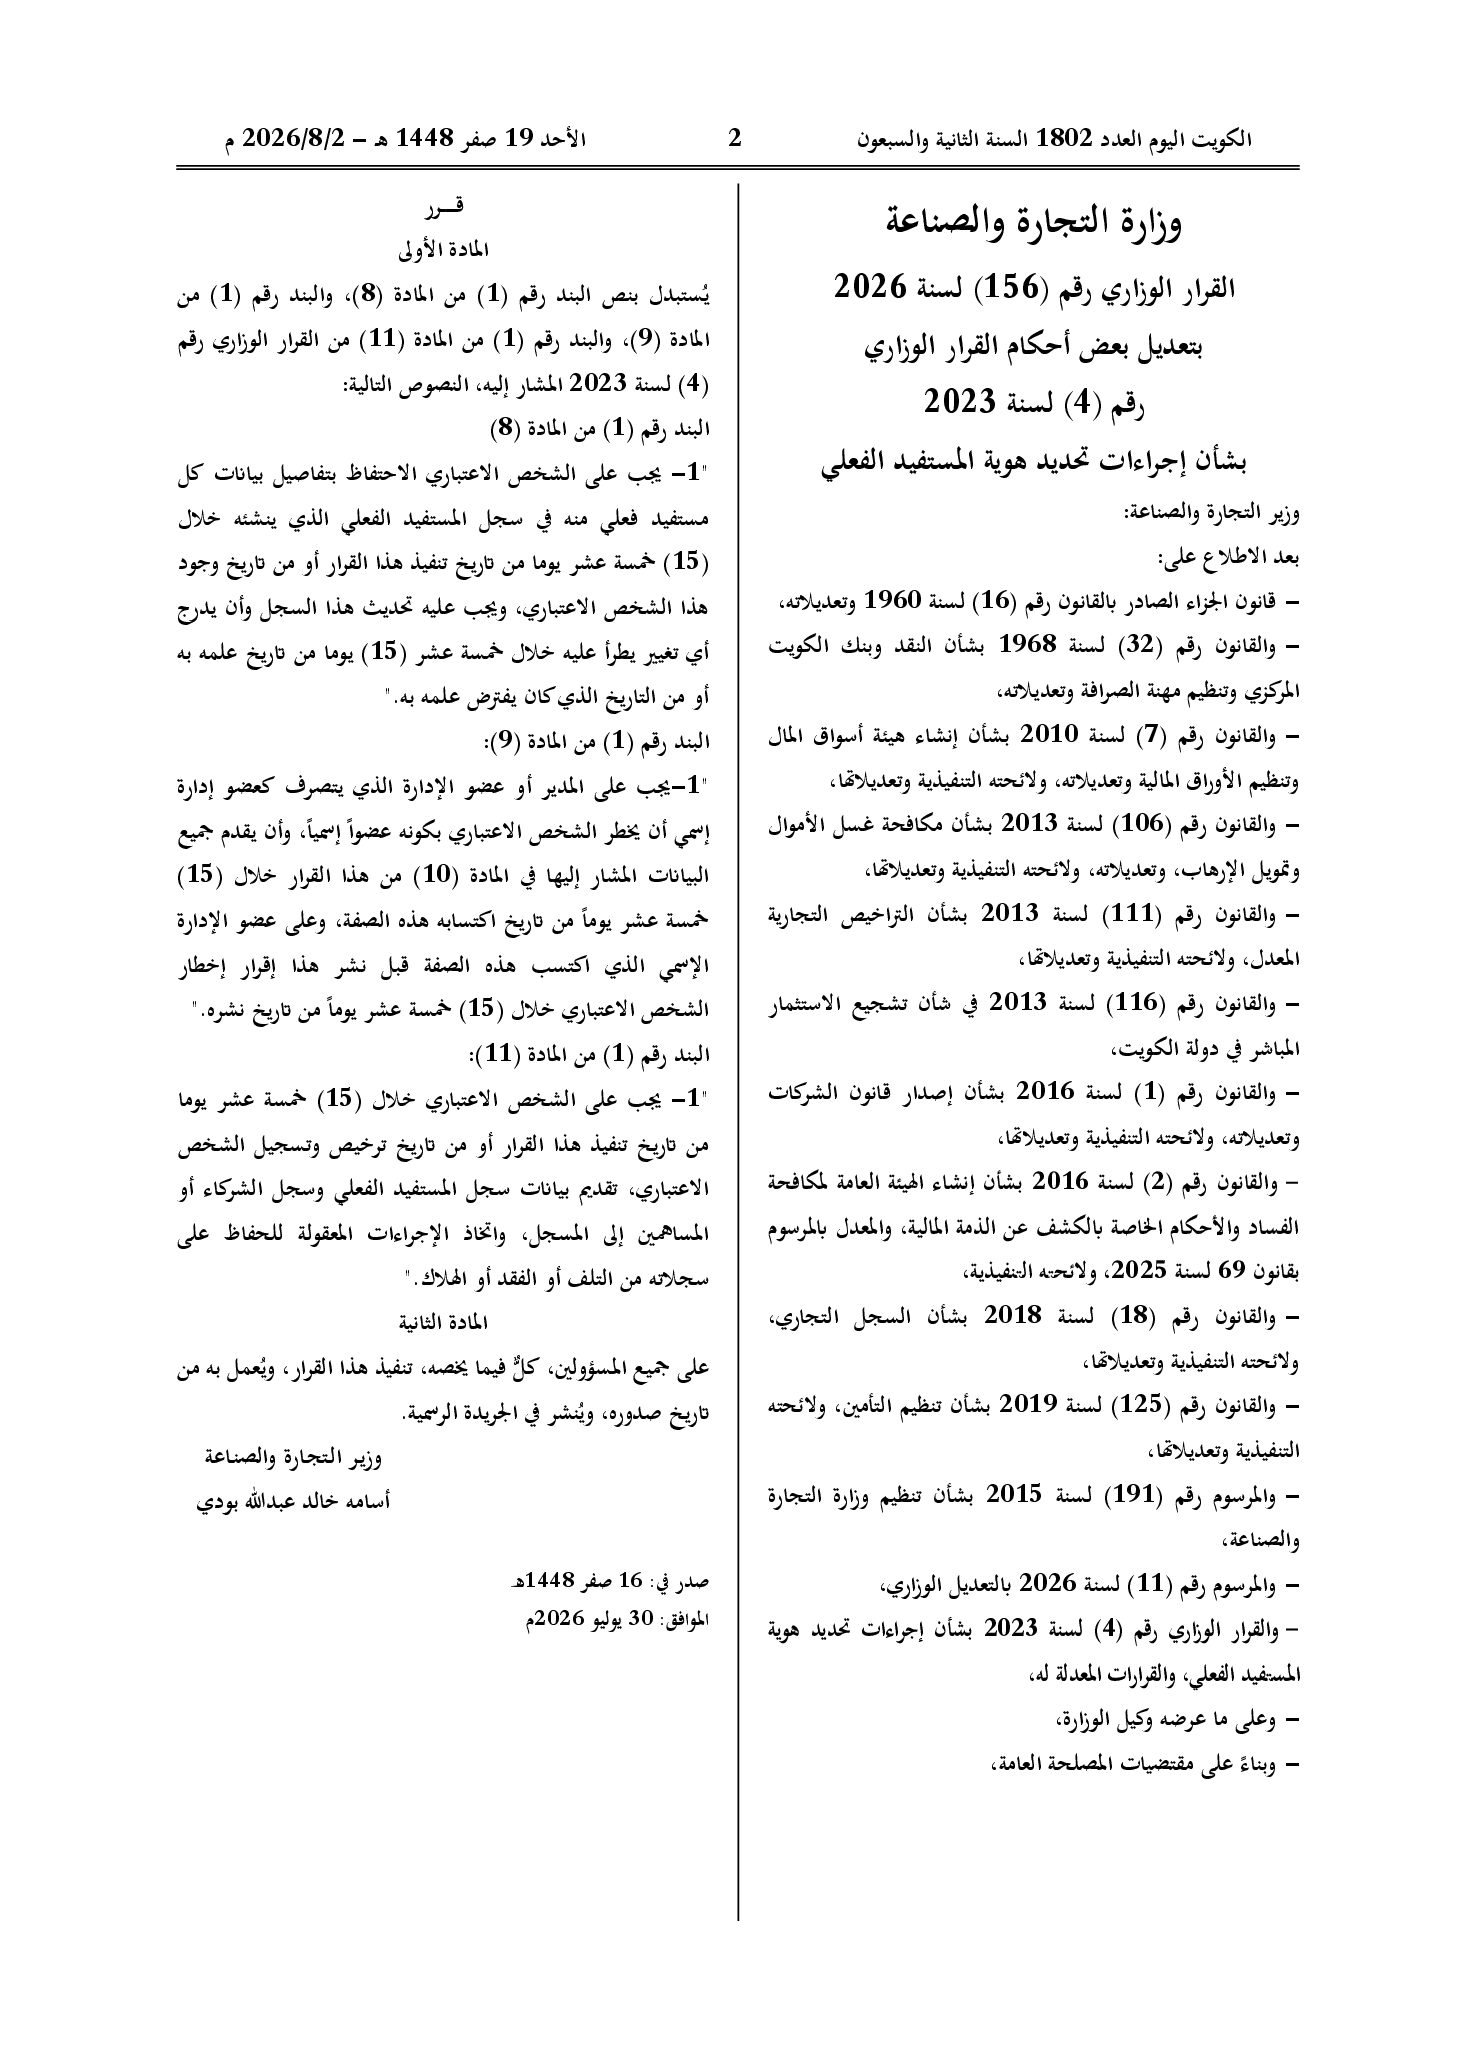 الكويت اليوم العدد 1802 السنة الثانية والسبعون
2
الأحد 19 صفر 1448 هـ – 2026/8/2 م
وزارة التجارة والصناعة
القرار الوزاري رقم (156) لسنة 2026
بتعديل بعض أحكام القرار الوزاري
رقم (4) لسنة 2023
بشأن إجراءات تحديد هوية المستفيد الفعلي
وزير التجارة والصناعة:
بعد الاطلاع على:
– قانون الجزاء الصادر بالقانون رقم (16) لسنة 1960 وتعديلاته،
– والقانون رقم (32) لسنة 1968 بشأن النقد وبنك الكويت
المركزي وتنظيم مهنة الصرافة وتعديلاته،
– والقانون رقم (7) لسنة 2010 بشأن إنشاء هيئة أسواق المال
وتنظيم الأوراق المالية وتعديلاته، ولائحته التنفيذية وتعديلاتها،
– والقانون رقم (106) لسنة 2013 بشأن مكافحة غسل الأموال
وتمويل الإرهاب، وتعديلاته، ولائحته التنفيذية وتعديلاتها،
– والقانون رقم (111) لسنة 2013 بشأن التراخيص التجارية
المعدل، ولائحته التنفيذية وتعديلاتها،
– والقانون رقم (116) لسنة 2013 في شأن تشجيع الاستثمار
المباشر في دولة الكويت،
– والقانون رقم (1) لسنة 2016 بشأن إصدار قانون الشركات
وتعديلاته، ولائحته التنفيذية وتعديلاتها،
– والقانون رقم (2) لسنة 2016 بشأن إنشاء الهيئة العامة لمكافحة
الفساد والأحكام الخاصة بالكشف عن الذمة المالية، والمعدل بالمرسوم
بقانون 69 لسنة 2025، ولائحته التنفيذية،
– والقانون رقم (18) لسنة 2018 بشأن السجل التجاري،
ولائحته التنفيذية وتعديلاتها،
– والقانون رقم (125) لسنة 2019 بشأن تنظيم التأمين، ولائحته
التنفيذية وتعديلاتها،
– والمرسوم رقم (191) لسنة 2015 بشأن تنظيم وزارة التجارة
والصناعة،
– والمرسوم رقم (11) لسنة 2026 بالتعديل الوزاري،
– والقرار الوزاري رقم (4) لسنة 2023 بشأن إجراءات تحديد هوية
المستفيد الفعلي، والقرارات المعدلة له،
– وعلى ما عرضه وكيل الوزارة،
– وبناءً على مقتضيات المصلحة العامة،
قـــرر
المادة الأولى
يُستبدل بنص البند رقم (1) من المادة (8)، والبند رقم (1) من
المادة (9)، والبند رقم (1) من المادة (11) من القرار الوزاري رقم
(4) لسنة 2023 المشار إليه، النصوص التالية:
البند رقم (1) من المادة (8)
"1– يجب على الشخص الاعتباري الاحتفاظ بتفاصيل بيانات كل
مستفيد فعلي منه في سجل المستفيد الفعلي الذي ينشئه خلال
(15) خمسة عشر يوما من تاريخ تنفيذ هذا القرار أو من تاريخ وجود
هذا الشخص الاعتباري، ويجب عليه تحديث هذا السجل وأن يدرج
أي تغيير يطرأ عليه خلال خمسة عشر (15) يوما من تاريخ علمه به
أو من التاريخ الذي كان يفترض علمه به."
البند رقم (1) من المادة (9):
"1–يجب على المدير أو عضو الإدارة الذي يتصرف كعضو إدارة
إسمي أن يخطر الشخص الاعتباري بكونه عضواً إسمياً، وأن يقدم جميع
البيانات المشار إليها في المادة (10) من هذا القرار خلال (15)
خمسة عشر يوماً من تاريخ اكتسابه هذه الصفة، وعلى عضو الإدارة
الإسمي الذي اكتسب هذه الصفة قبل نشر هذا إقرار إخطار
الشخص الاعتباري خلال (15) خمسة عشر يوماً من تاريخ نشره."
البند رقم (1) من المادة (11):
"1– يجب على الشخص الاعتباري خلال (15) خمسة عشر يوما
من تاريخ تنفيذ هذا القرار أو من تاريخ ترخيص وتسجيل الشخص
الاعتباري، تقديم بيانات سجل المستفيد الفعلي وسجل الشركاء أو
المساهمين إلى المسجل، واتخاذ الإجراءات المعقولة للحفاظ على
سجلاته من التلف أو الفقد أو الهلاك."
المادة الثانية
على جميع المسؤولين، كلٌّ فيما يخصه، تنفيذ هذا القرار، ويُعمل به من
تاريخ صدوره، ويُنشر في الجريدة الرسمية.
وزير التجارة والصناعة
أسامه خالد عبدالله بودي
صدر في: 16 صفر 1448هـ
الموافق: 30 يوليو 2026م